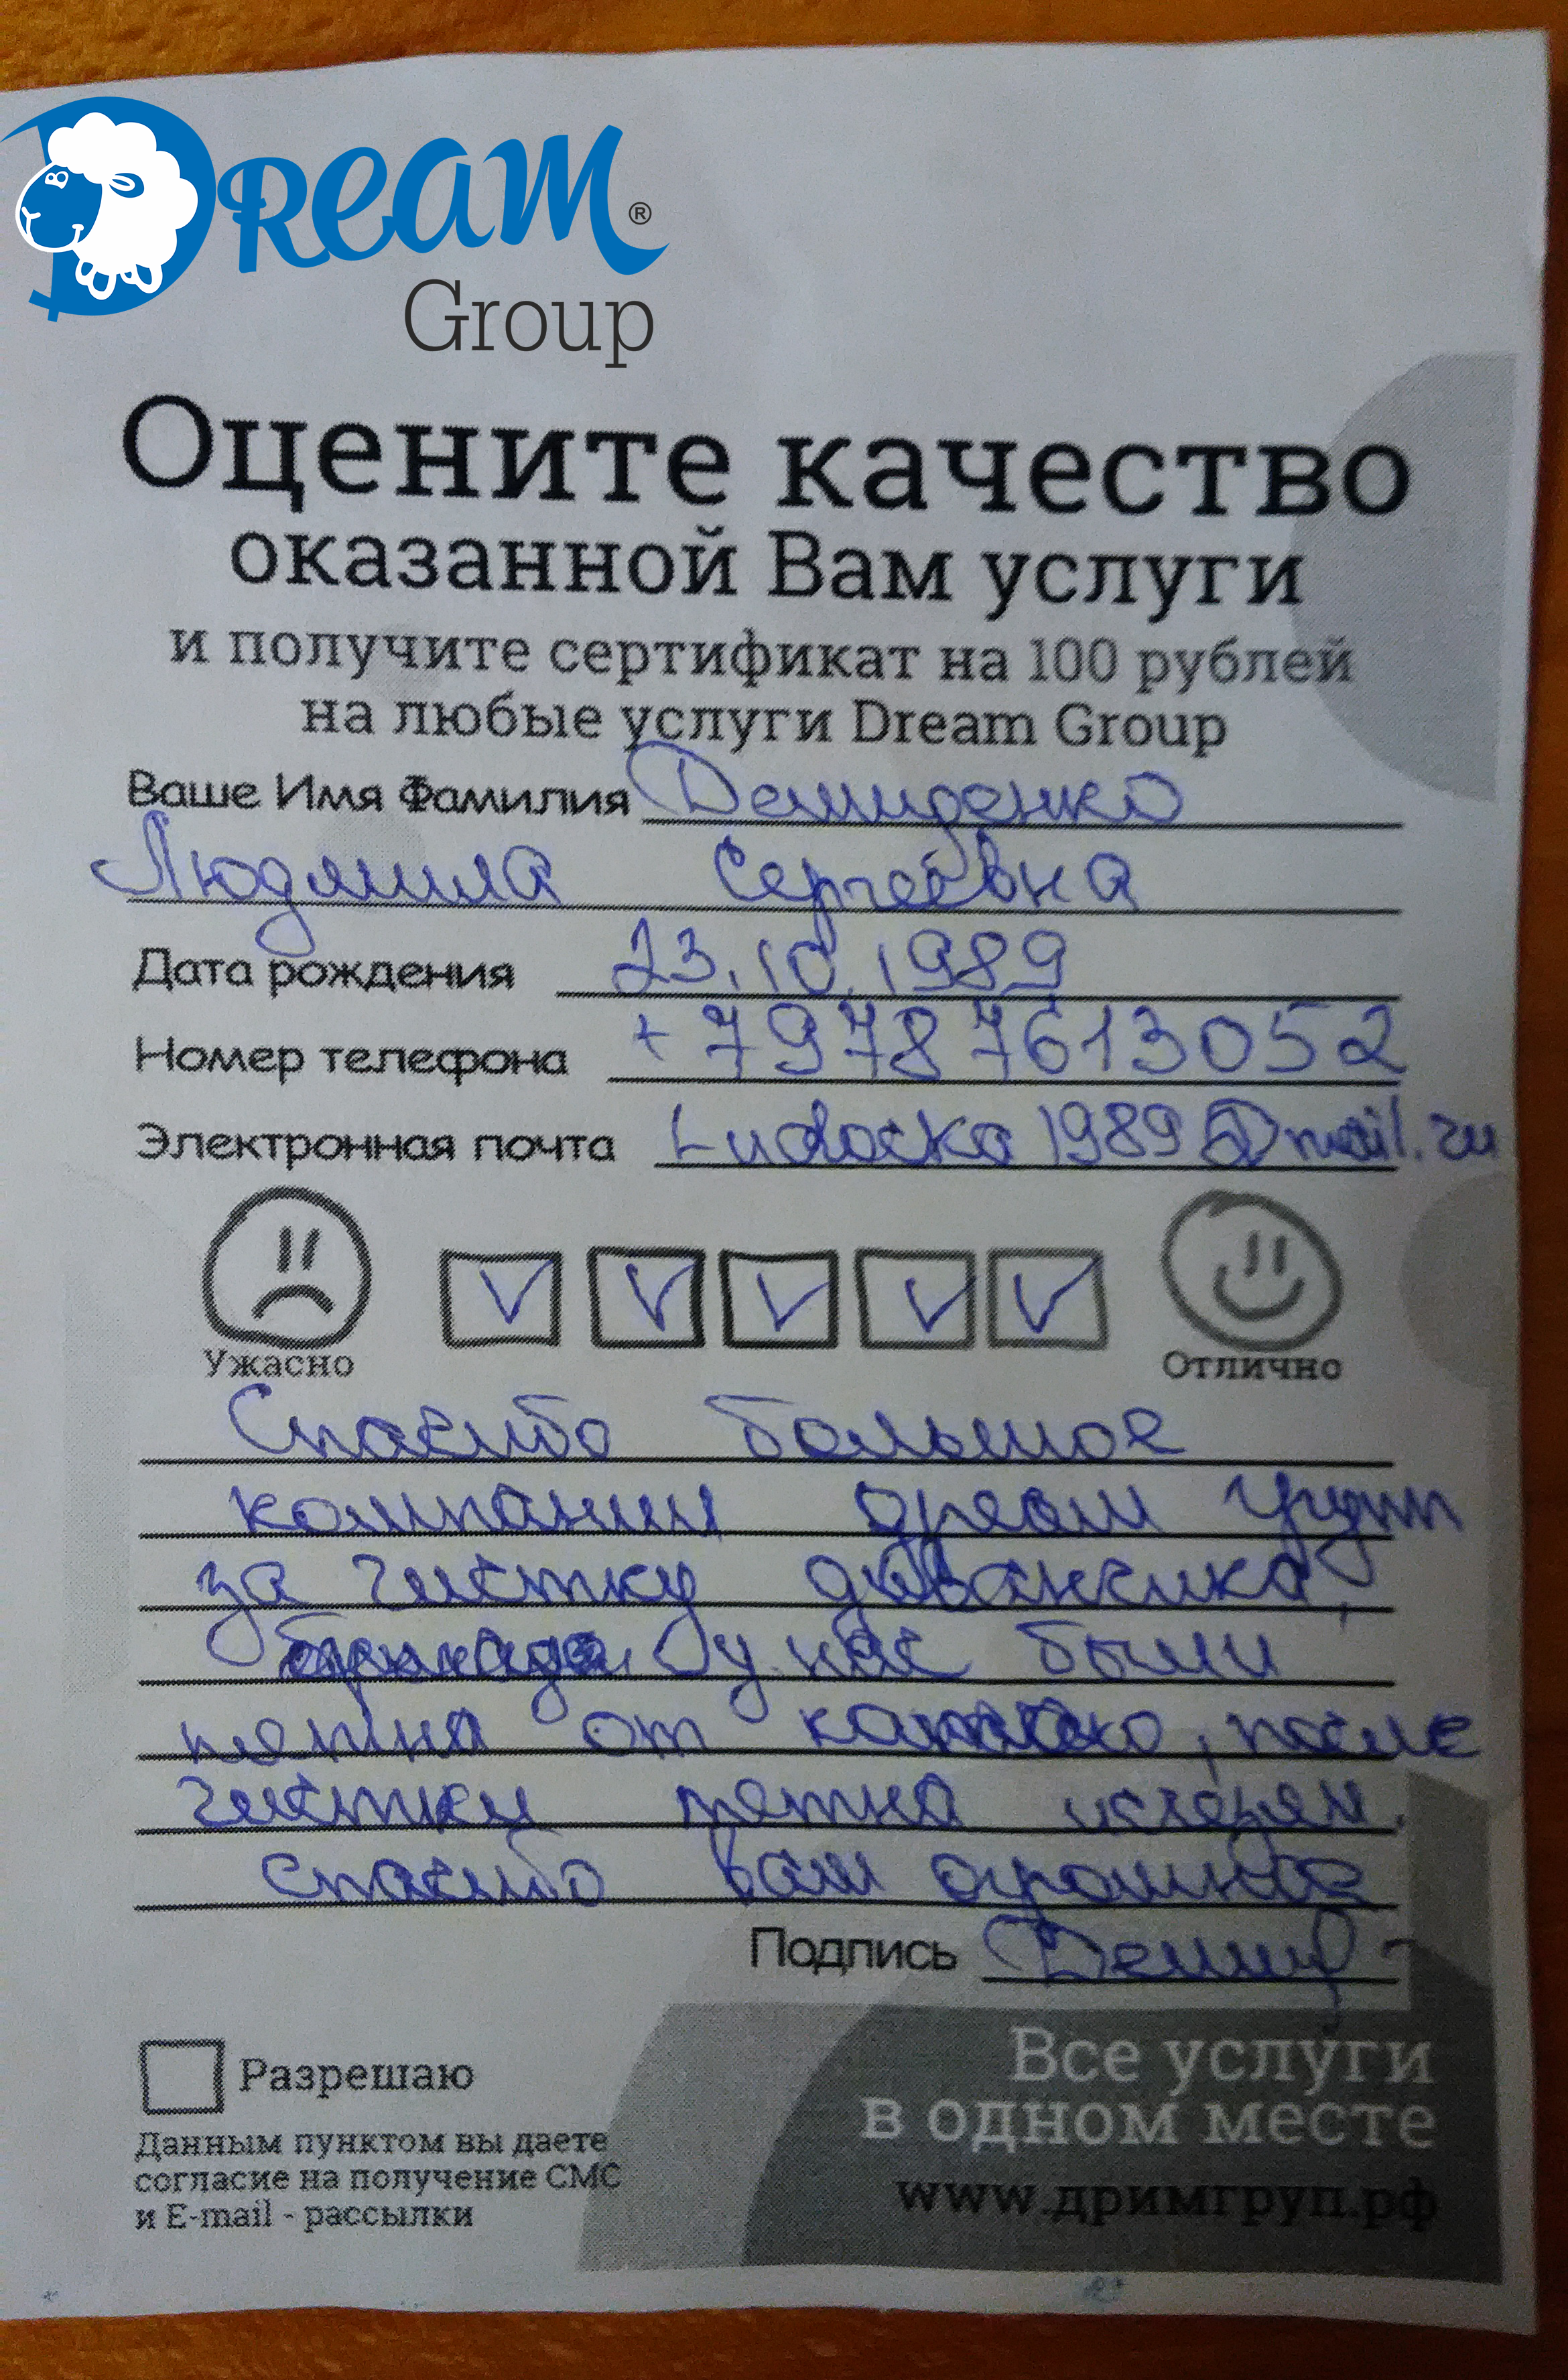 Dream ®
Group
Оцените качество
оказанной Вам услуги
и получите сертификат на 100 рублей
на любые услуги Dream Group
Ваше Имя Фамилия Демиденко
Людмила Сергеевна
Дата рождения 23.10.1989
Номер телефона +79787613052
Электронная почта Ludocka1989@mail.ru
Ужасно
Отлично
Спасибо большое
компании дреам груп
за чистку диванчика,
у нас были
пятна от, после
чистки пятна исчезли.
Спасибо вам огромное
Подпись Демид
Разрешаю
Данным пунктом вы даете
согласие на получение СМС
и E-mail - рассылки
Все услуги
в одном месте
www.дримгруп.рф